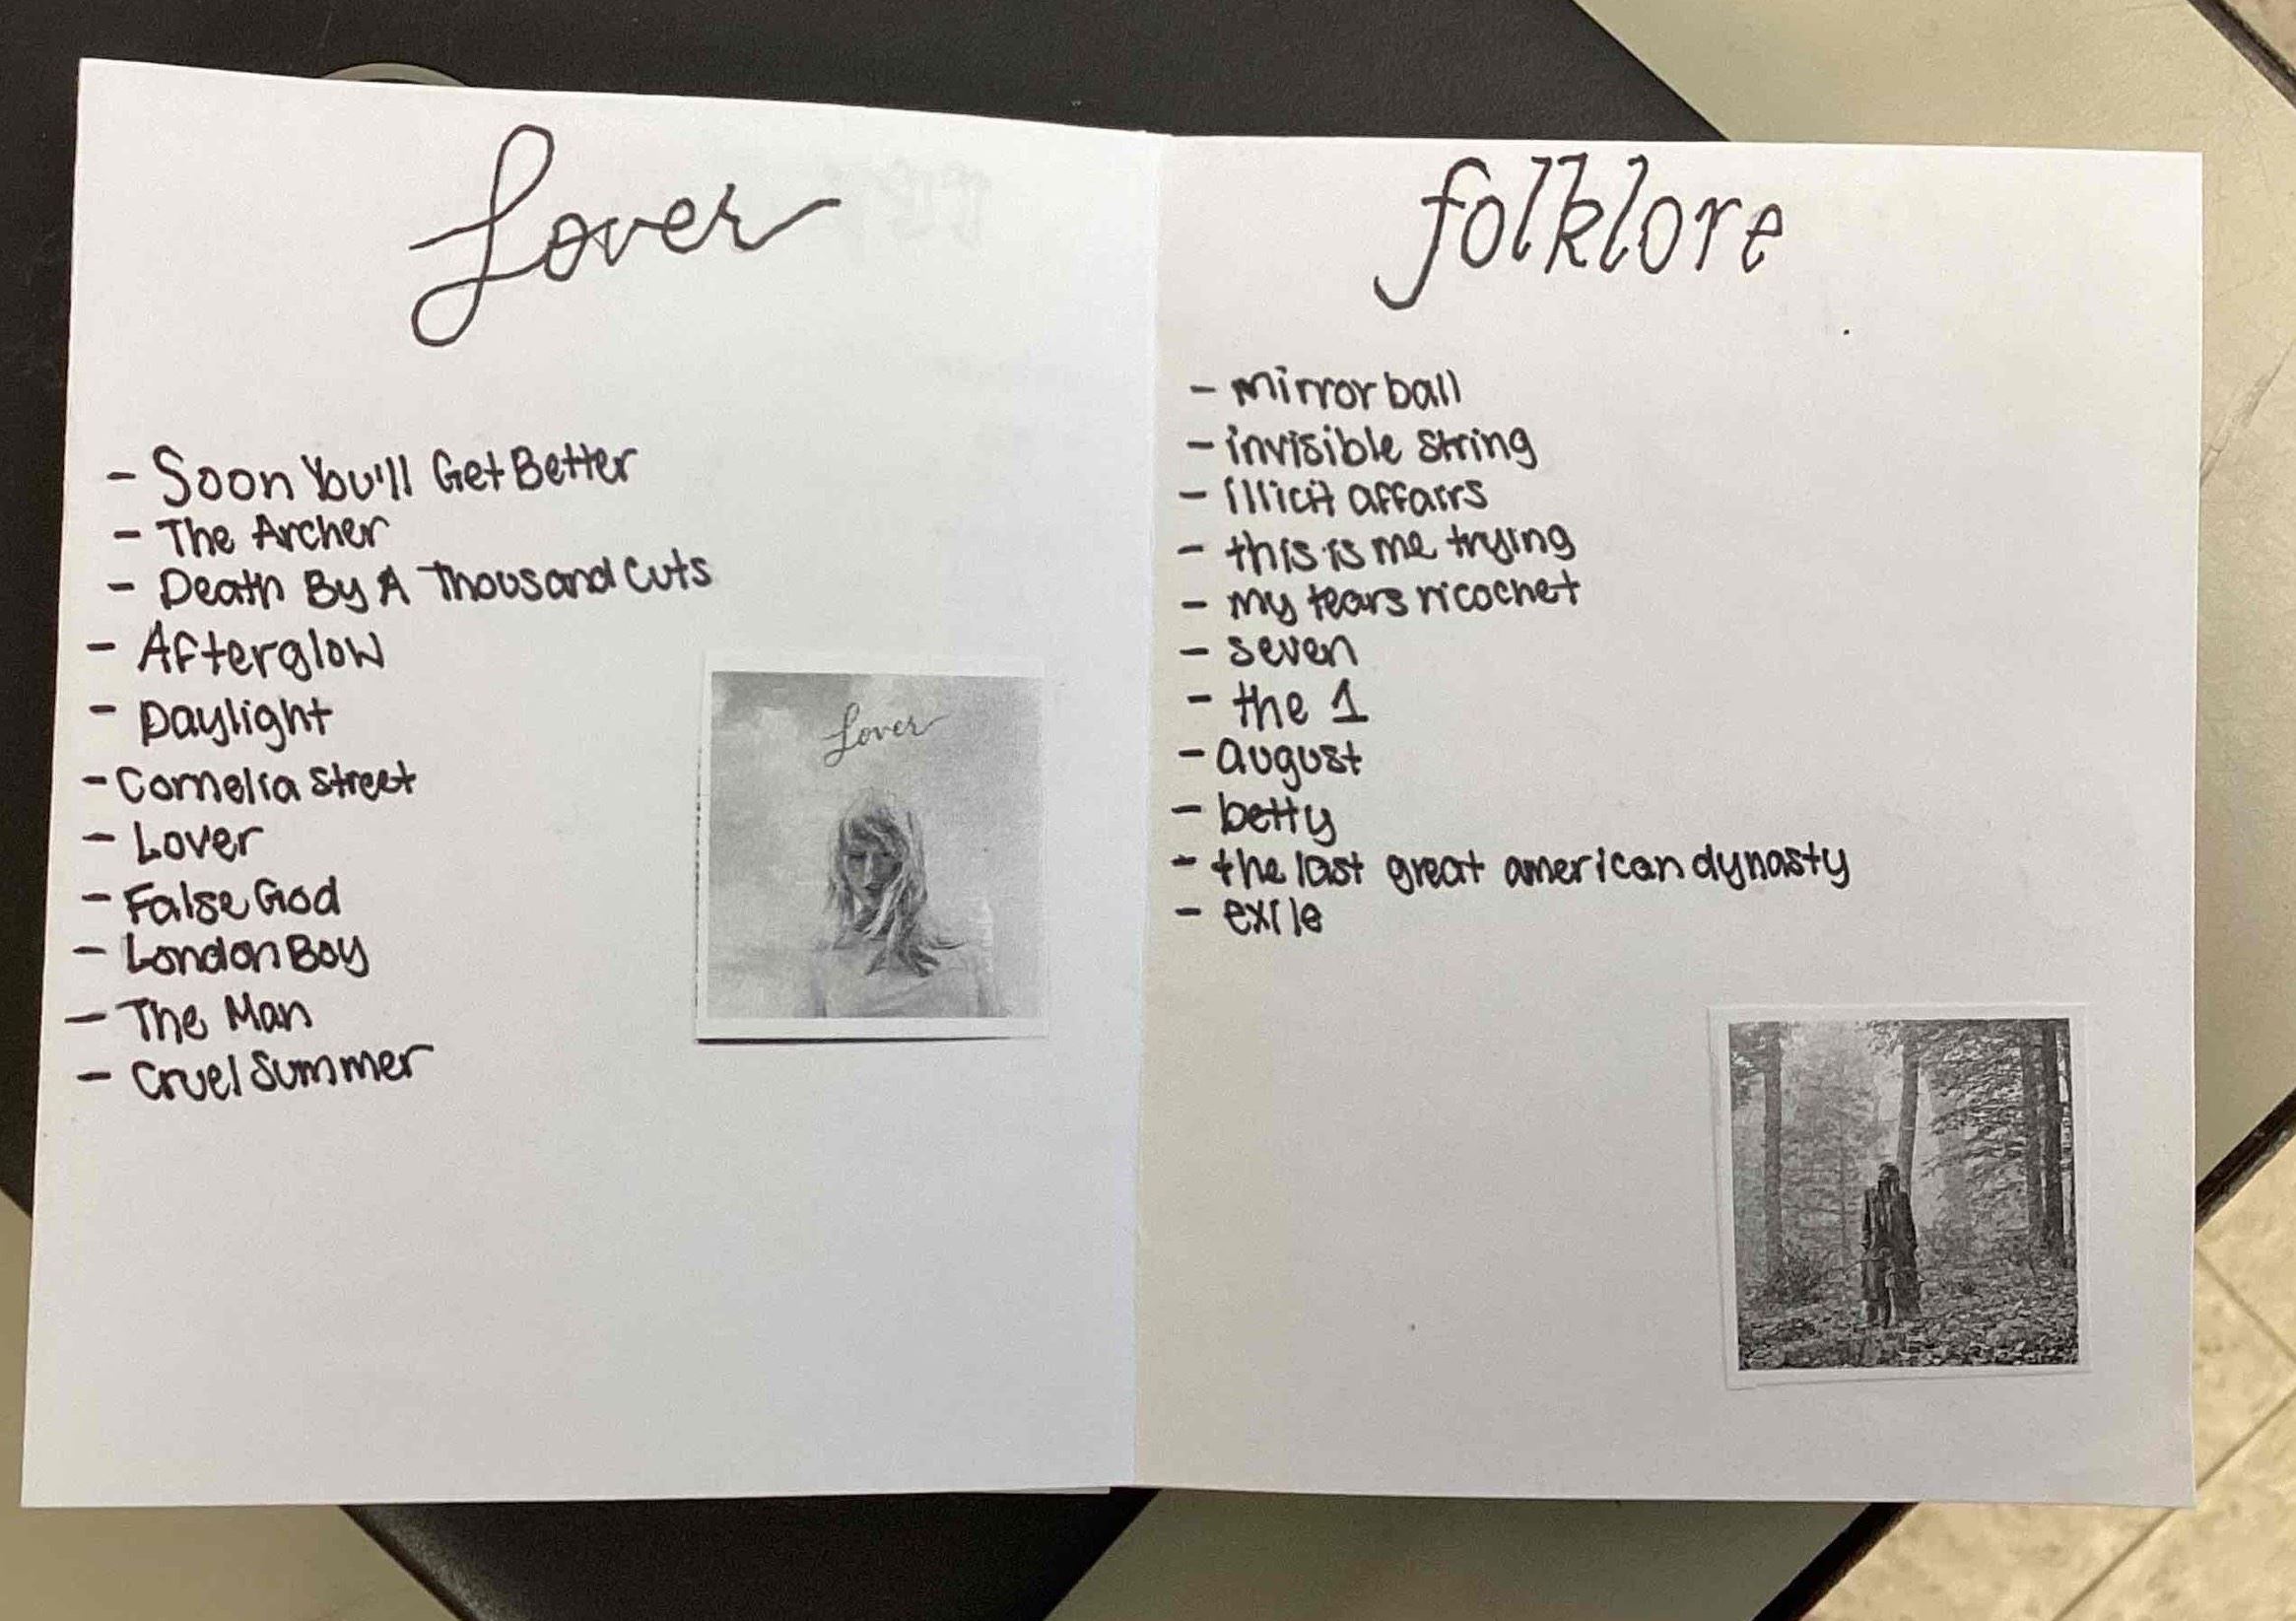 Lover
- Soon You'll Get Better
- The Archer
- Death By A Thousand Cuts
- Afterglow
- Daylight
- Cornelia Street
- Lover
- False God
- London Boy
- The Man
- Cruel Summer
Lover
folklore
- mirrorball
- invisible string
- illicit affairs
- this is me trying
- my tears ricochet
- seven
- the 1
- august
- betty
- the last great american dynasty
- exile